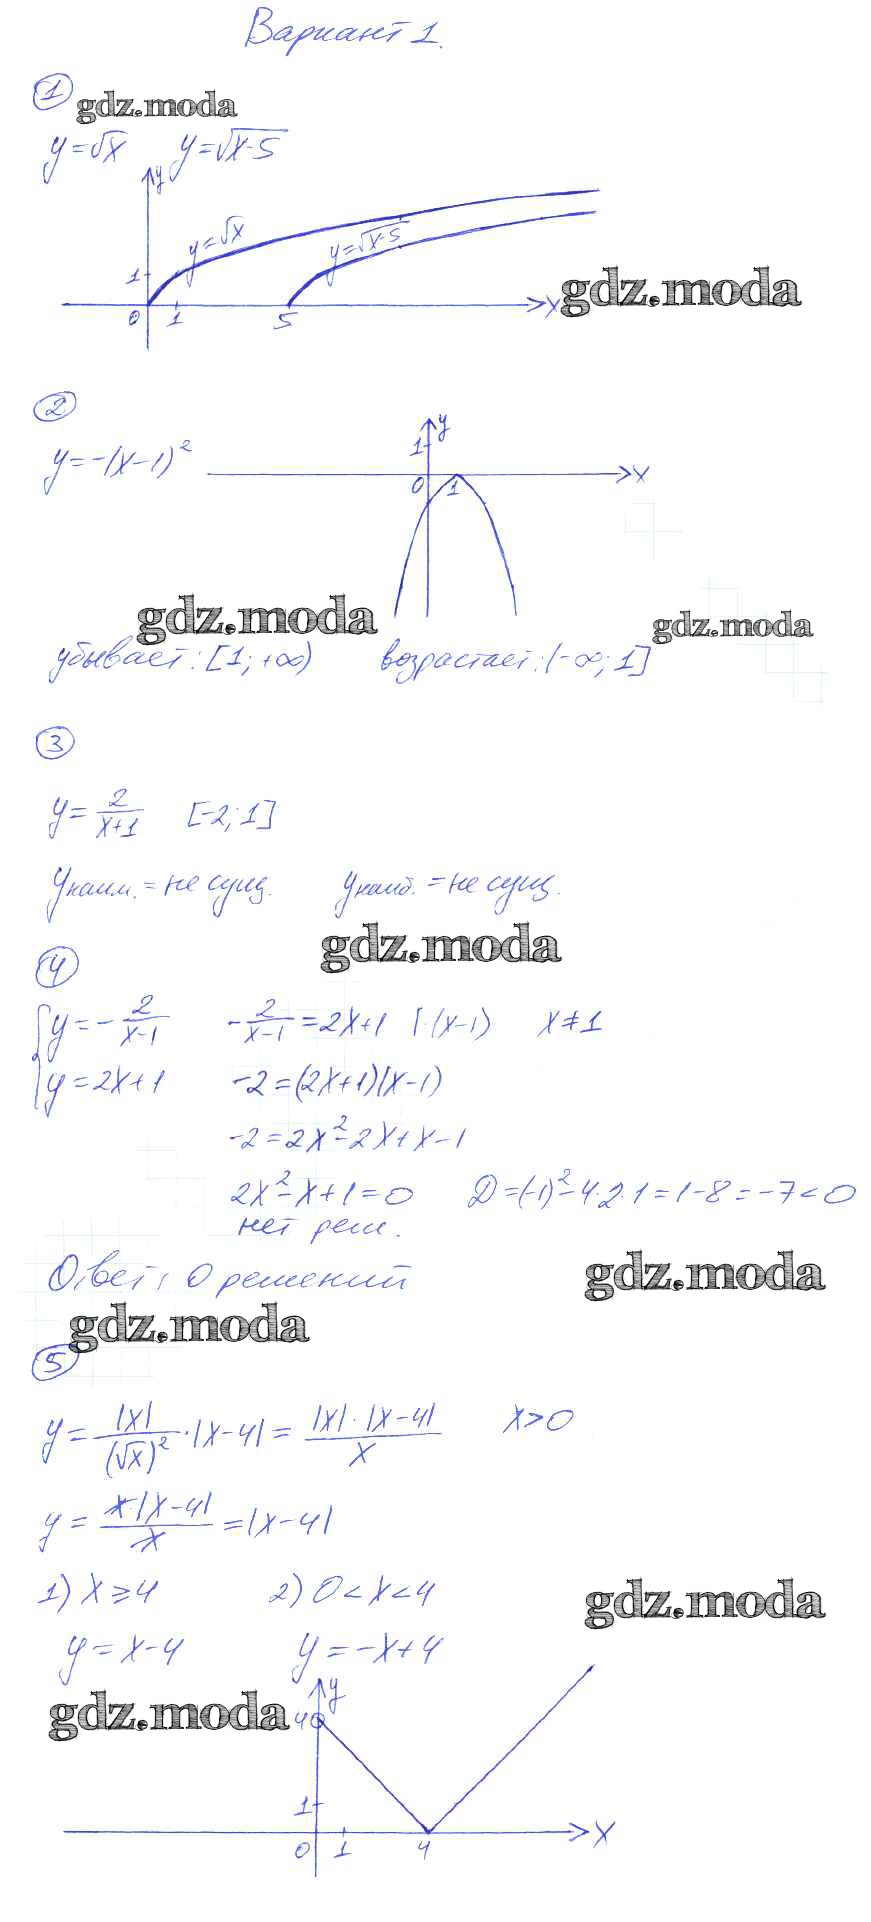 Вариант 1.
1
gdz.moda
y=√x y=√x-5
y
y=√x y=√x-5
1
gdz.moda
0 1 5 x
2
y
y=-(x-1)² 1
0 1 x
gdz.moda
gdz.moda
убывает: [1; +∞) возрастает: (-∞; 1]
3
y= 2/(x+1) [-2; 1]
yнаим. = не сущ. yнаиб. = не сущ.
gdz.moda
4
{ y=- 2/(x-1) - 2/(x-1) =2x+1 |·(x-1) x≠1
y=2x+1 -2=(2x+1)(x-1)
-2=2x²-2x+x-1
2x²-x+1=0 D=(-1)²-4·2·1=1-8=-7<0
нет реш.
Ответ: 0 решений
gdz.moda
gdz.moda
5
y= |x|/(√x)² ·|x-4|= |x|·|x-4|/x x>0
y= x·|x-4|/x =|x-4|
1) x≥4 2) 0<x<4
gdz.moda
y=x-4 y=-x+4
y
gdz.moda
4
1
0 1 4 x